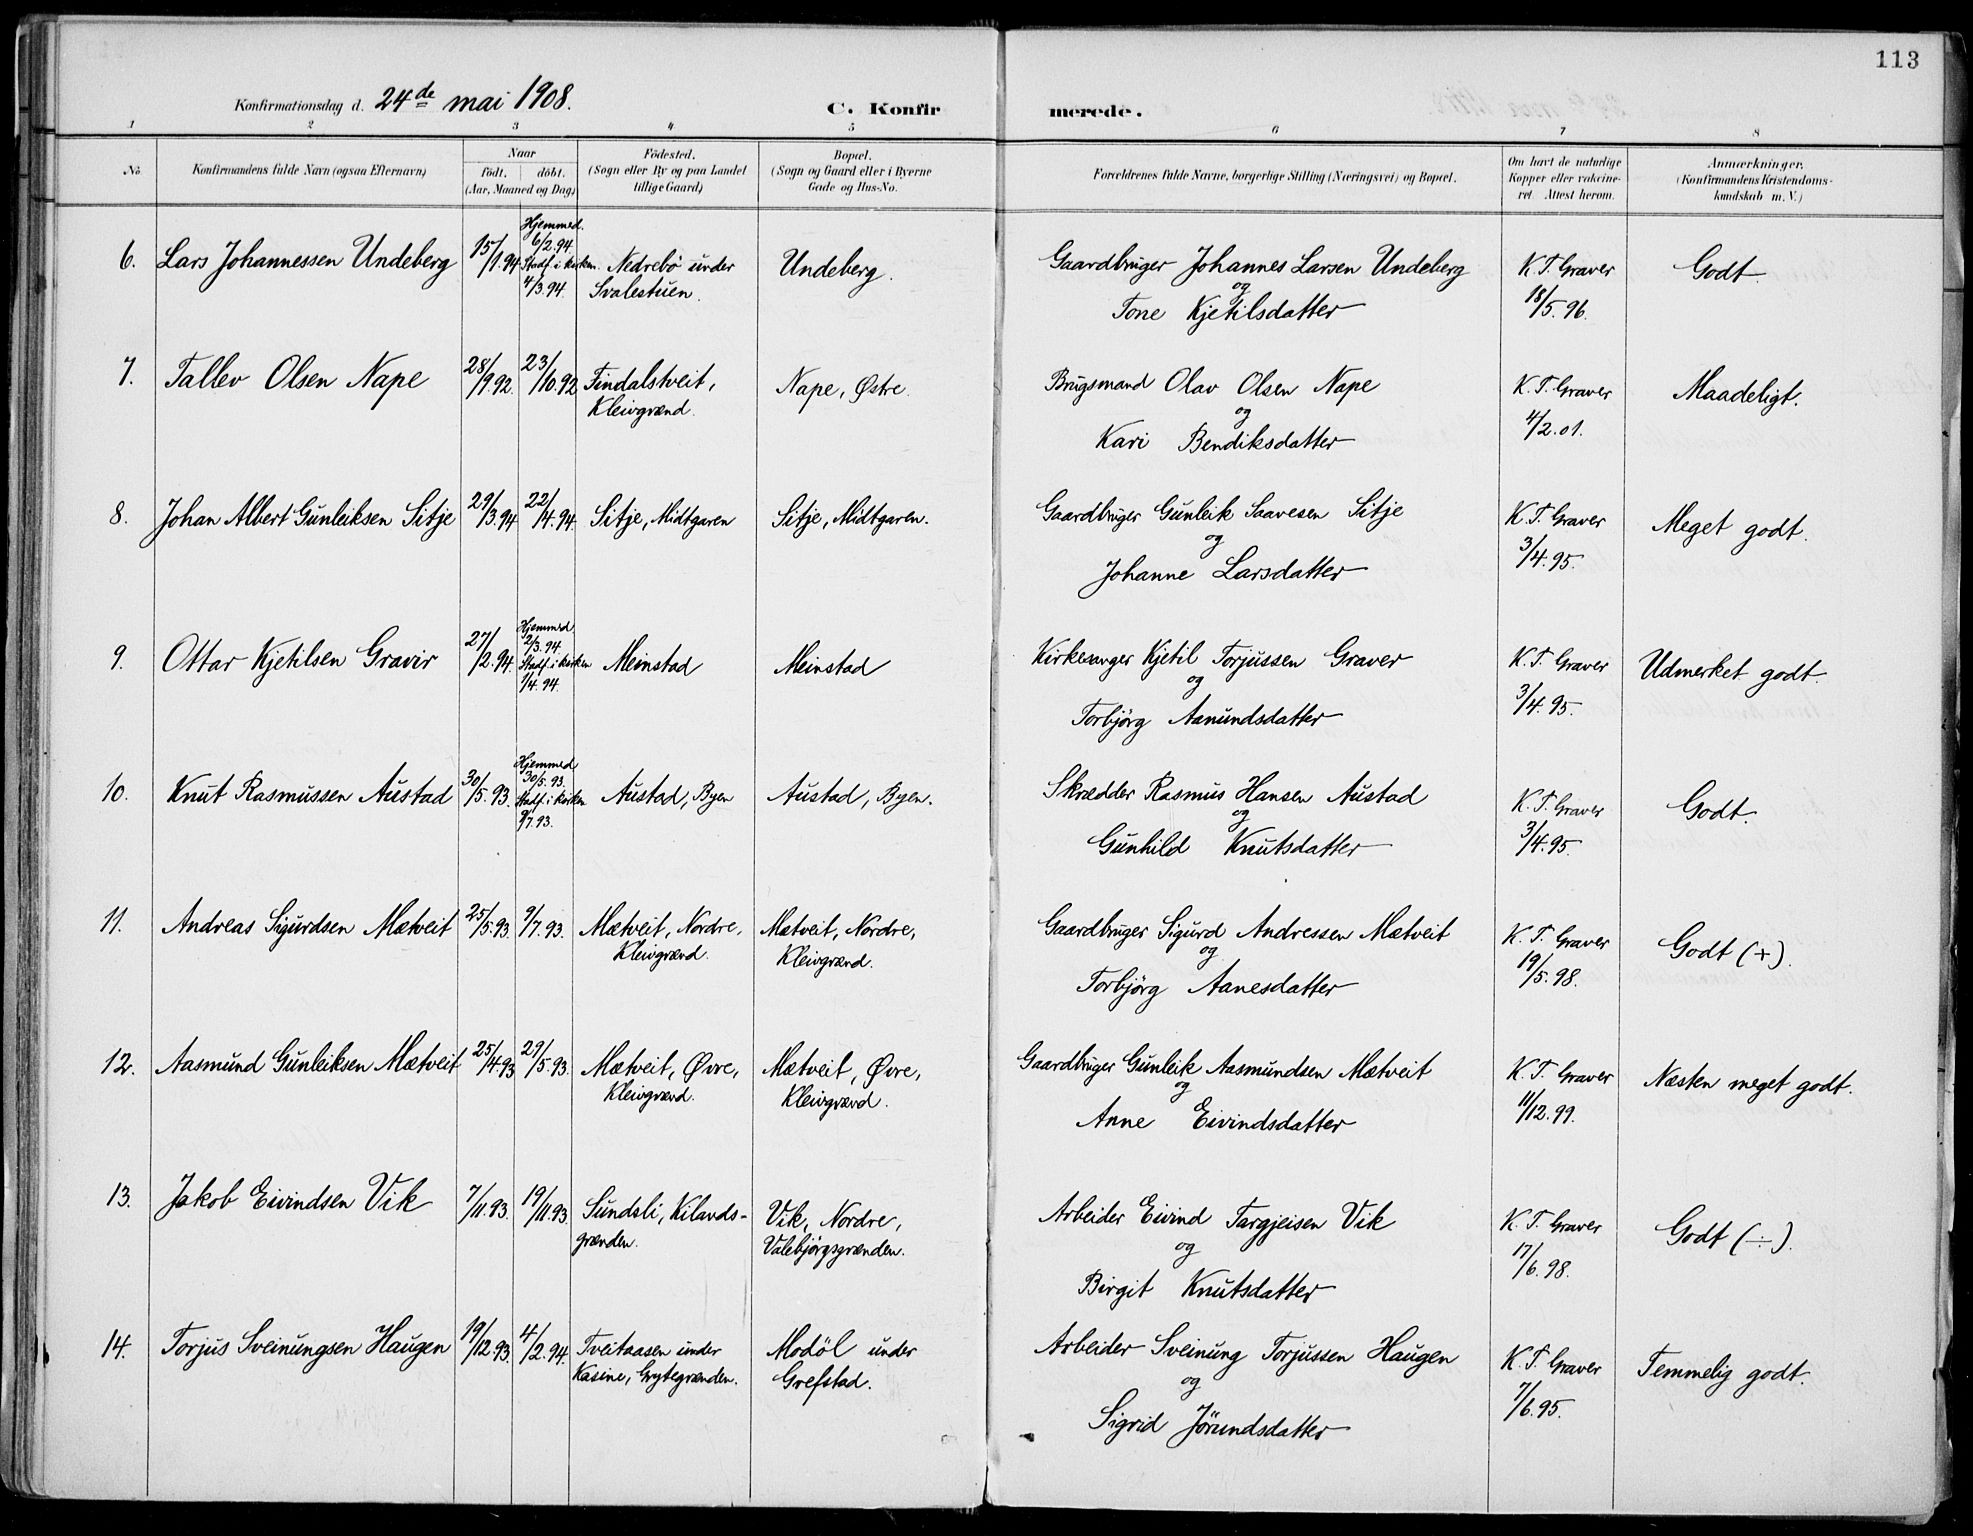 113
Konfirmationsdag d. 24de mai 1908.
C. Konfirmerede.
1 2 3 4 5 6 7 8
No.
Konfirmandens fulde Navn (ogsaa Efternavn)
Naar
födt. döbt.
(Aar, Maaned og Dag)
Födested.
(Sogn eller By og paa Landet
tillige Gaard)
Bopæl.
(Sogn og Gaard eller i Byerne
Gade og Hus-No.
Forældrenes fulde Navne, borgerlige Stilling (Næringsvei) og Bopæl.
Om havt de naturlige
Kopper eller vakcine-
ret. Attest herom.
Anmærkninger.
(Konfirmandens Kristendoms-
kundskab m. V.)
6. Lars Johannessen Undeberg 15/1.94. Hjemmed. 6/2.94. Stadf. i kirken 4/3.94. Nedrebö under Svalestuen. Undeberg. Gaardbruger Johannes Larsen Undeberg
og
Tone Kjetilsdatter
K. T. Graver
18/5.96.
Godt.
7. Tallev Olsen Nape 28/9.92. 23/10.92. Findalstveit, Kleivgrænd. Nape, Østre. Brugsmand Olav Olsen Nape
og
Kari Bendiksdatter
K. T. Graver
4/2.01.
Maadeligt.
8. Johan Albert Gunleiksen Sitje 29/3.94. 22/4.94. Sitje, Midtgaren Sitje, Midtgaren. Gaardbruger Gunleik Saavesen Sitje
og
Johanne Larsdatter
K. T. Graver
3/4.95.
Meget godt.
9. Ottar Kjetilsen Gravir 27/2.94. Hjemmed 2/3.94. Stadf. i kirken 1/4.94. Meinstad Meinstad Kirkesanger Kjetil Torjussen Graver
og
Torbjörg Aanundsdatter
K. T. Graver
3/4.95.
Udmerket godt.
10. Knut Rasmussen Austad 30/5.93. Hjemmed 30/5.93. Stadf. i kirken 9/7.93. Austad, Byen Austad, Byen. Skrædder Rasmus Hansen Austad
og
Gunhild Knutsdatter
K. T. Graver
3/4.95.
Godt.
11. Andreas Sigurdsen Mætveit 25/5.93. 9/7.93. Mætveit, Nordre, Kleivgrænd. Mætveit, Nordre, Kleivgrænd. Gaardbruger Sigurd Andressen Mætveit
og
Torbjörg Aanesdatter
K. T. Graver
19/5.98.
Godt (+).
12. Aasmund Gunleiksen Mætveit 25/4.93 29/5.93. Mætveit, Øvre, Kleivgrænd. Mætveit, Øvre, Kleivgrænd. Gaardbruger Gunleik Aasmundsen Mætveit
og
Anne Eivindsdatter
K. T. Graver
11/12.99.
Næsten meget godt.
13. Jakob Eivindsen Vik 7/11.93. 19/11.93. Sundsli, Kilands-
grænden. Vik, Nordre, Valebjörgsgrænden. Arbeider Eivind Targjeisen Vik
og
Birgit Knutsdatter
K. T. Graver
17/6.98.
Godt (÷).
14. Torjus Sveinungsen Haugen 19/12.93. 4/2.94. Tveitaasen under Kasine, Grytegrænden. Modöl under Grefstad. Arbeider Sveinung Torjussen Haugen
og
Sigrid Jörundsdatter
K. T. Graver
7/6.95.
Temmelig godt.